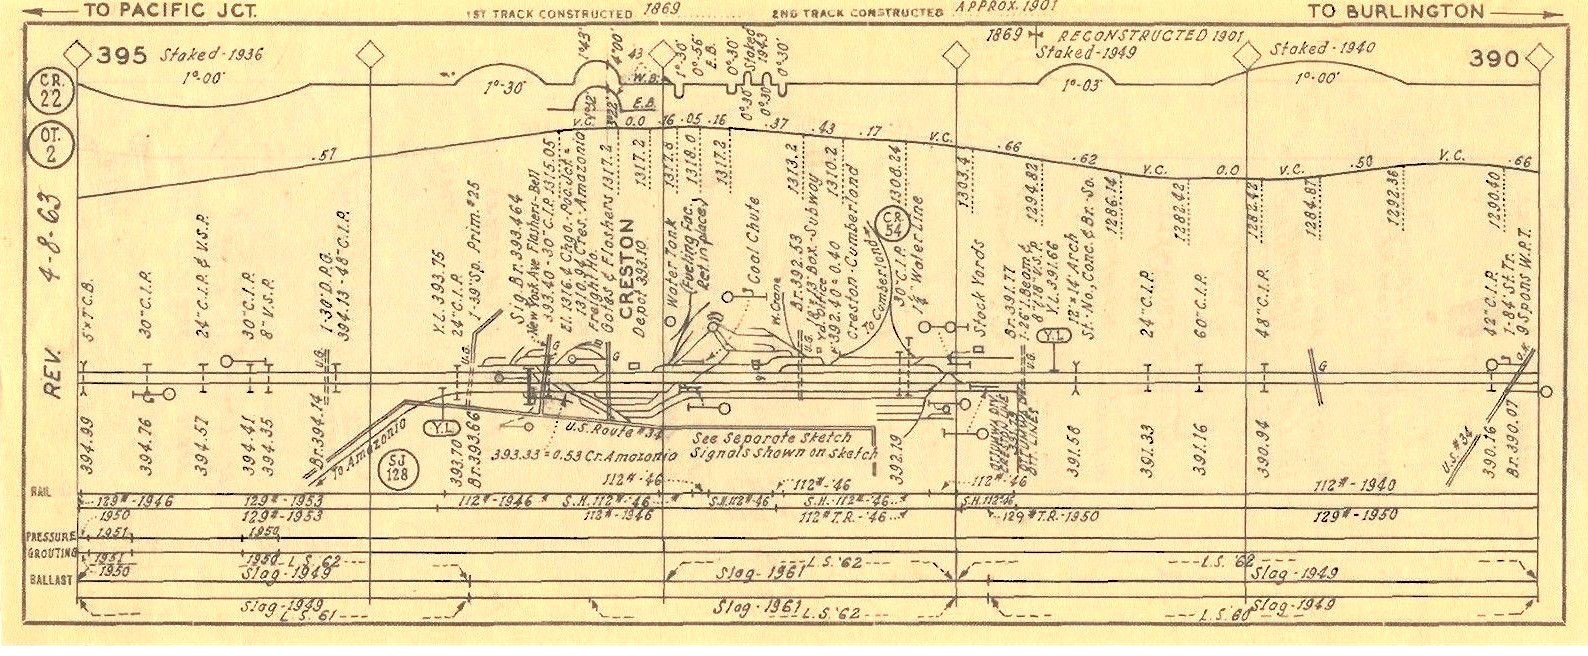 TO PACIFIC JCT.
1ST TRACK CONSTRUCTED 1869
2ND TRACK CONSTRUCTED APPROX. 1901
TO BURLINGTON
1869
RECONSTRUCTED 1901
395
Staked - 1936
Staked 1943
Staked - 1949
Staked - 1940
390
C.R. 22
1°-00'
1°-30'
1°43'
4°00'
43
W.B.
E.B.
1°-30'
0°-56' E.B.
0°-30'
0°30'
0°30'
0°-30'
1°-03'
1°-00'
OT. 2
.57
V.C.
0.0
.16
.05
.16
.37
.43
.17
V.C.
.66
.62
V.C.
0.0
V.C.
.50
V.C.
.66
1317.2
1317.2
1317.8
1318.0
1317.2
1313.2
1310.2
1308.24
1303.4
1294.82
1286.14
1282.42
1282.42
1284.87
1292.36
1290.40
REV. 4-8-63
5"x T.C.B.
30" C.I.P.
24" C.I.P. & V.S.P.
30" C.I.P.
8" V.S.P.
1-30" D.P.G.
394.13 - 48" C.I.P.
Y.L. 393.75
24" C.I.P.
1-39' Sp. Prim. #25
Sig. Br. 393.464
New York Ave Flashers-Bell
393.40 - 30" C.I.P. 1315.05
El. 1316 ¢ Chgo.- Pac. Jct. =
1310.94 Cres.- Amazonia
Freight Ho.
Gates & Flashers
CRESTON
Depot 393.10
Water Tank
(Fueling Fac. Ret. in place)
Coal Chute
W. Crane
Br. 392.53
18'x13' Box-Subway
Yd. Office
392.40 = 0.40
Creston-Cumberland
To Cumberland
CR 54
30" C.I.P.
Water Line
Stock Yards
Br. 391.77
1-26' I. Beam &
8"/18" V.S.P.
Y.L. 391.66
12'x14' Arch
St.-No., Conc. & Br.-So.
24" C.I.P.
60" C.I.P.
48" C.I.P.
42" C.I.P.
1-84' S.T. Tr.
9 Spans W.P.T.
U.G.
U.G.
U.G.
U.G.
G
G
G
O.K.
Y.L.
Y.L.
394.99
394.76
394.57
394.41
394.35
Br. 394.14
To Amazonia
SJ 128
393.70
Br. 393.66
U.S. Route #34
393.33 = 0.53 Cr. Amazonia
See Separate Sketch
Signals shown on sketch
392.19
OTTUMWA DIV.
391.58
391.33
391.16
390.94
U.S. #34
390.16
Br. 390.07
RAIL
129# - 1946
129# - 1953
112# - 1946
S.H. 112# - '46
112# - '46
S.H. 112# '46
112# - '46
S.H. - 112# - '46
112# - '46
S.H. 112# '46
112# - 1940
1950
129# - 1953
112# - 1946
112# T.R. - '46
129# T.R. - 1950
129# - 1950
PRESSURE
1951
1950
GROUTING
1951
1950
L.S. '62
L.S. '62
L.S. '62
BALLAST
1950
Slag - 1949
Slag - 1961
Slag - 1949
Slag - 1949
L.S. '61
Slag - 1961
L.S. '62
L.S. '60
Slag - 1949